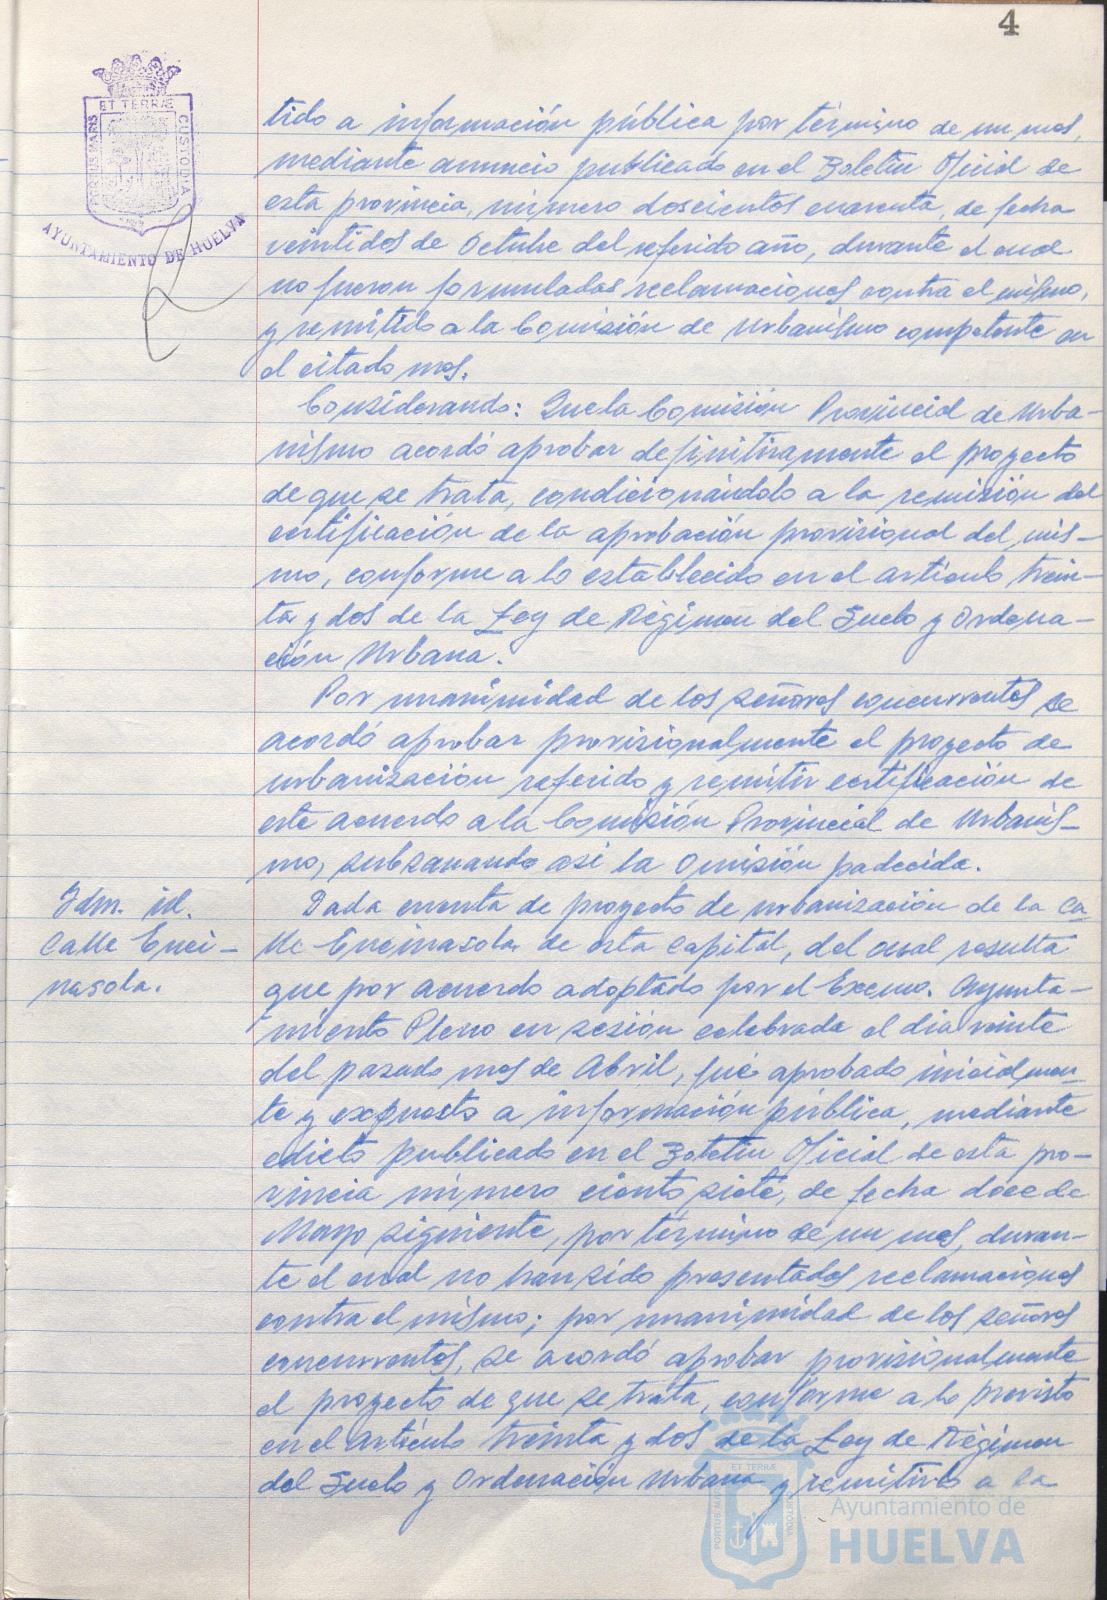 4
ET TERRÆ
PORTUS MARIS
CUSTODIA
AYUNTAMIENTO DE HUELVA
tido a información pública por término de un mes,
mediante anuncio publicado en el Boletín Oficial de
esta provincia, número doscientos cuarenta, de fecha
veintidos de Octubre del referido año, durante el cual
no fueron formuladas reclamaciones contra el mismo,
y remitido a la Comisión de Urbanismo competente en
el citado mes.
Considerando: Que la Comisión Provincial de Urba-
nismo acordó aprobar definitivamente el proyecto
de que se trata, condicionándolo a la remisión del
certificación de la aprobación provisional del mis-
mo, conforme a lo establecido en el artículo trein-
ta y dos de la Ley de Régimen del Suelo y Ordena-
ción Urbana.
Por unanimidad de los señores concurrentes se
acordó aprobar provisionalmente el proyecto de
urbanización referido y remitir certificación de
este acuerdo a la Comisión Provincial de Urbanis-
mo, subsanando así la omisión padecida.
Idm. id.
Calle Enci-
nasola.
Dada cuenta de proyecto de urbanización de la ca-
lle Encinasola de esta capital, del cual resulta
que por acuerdo adoptado por el Excmo. Ayunta-
miento Pleno en sesión celebrada el dia veinte
del pasado mes de Abril, fué aprobado inicialmen-
te y expuesto a información pública, mediante
edicto publicado en el Boletín Oficial de esta pro-
vincia número ciento siete, de fecha doce de
Mayo siguiente, por término de un mes, duran-
te el cual no han sido presentadas reclamaciones
contra el mismo; por unanimidad de los señores
concurrentes, se acordó aprobar provisionalmente
el proyecto de que se trata, conforme a lo previsto
en el artículo treinta y dos de la Ley de Régimen
del Suelo y Ordenación Urbana y remitirlo a la
ET TERRÆ
PORTUS MARIS
CUSTODIA
Ayuntamiento de
HUELVA